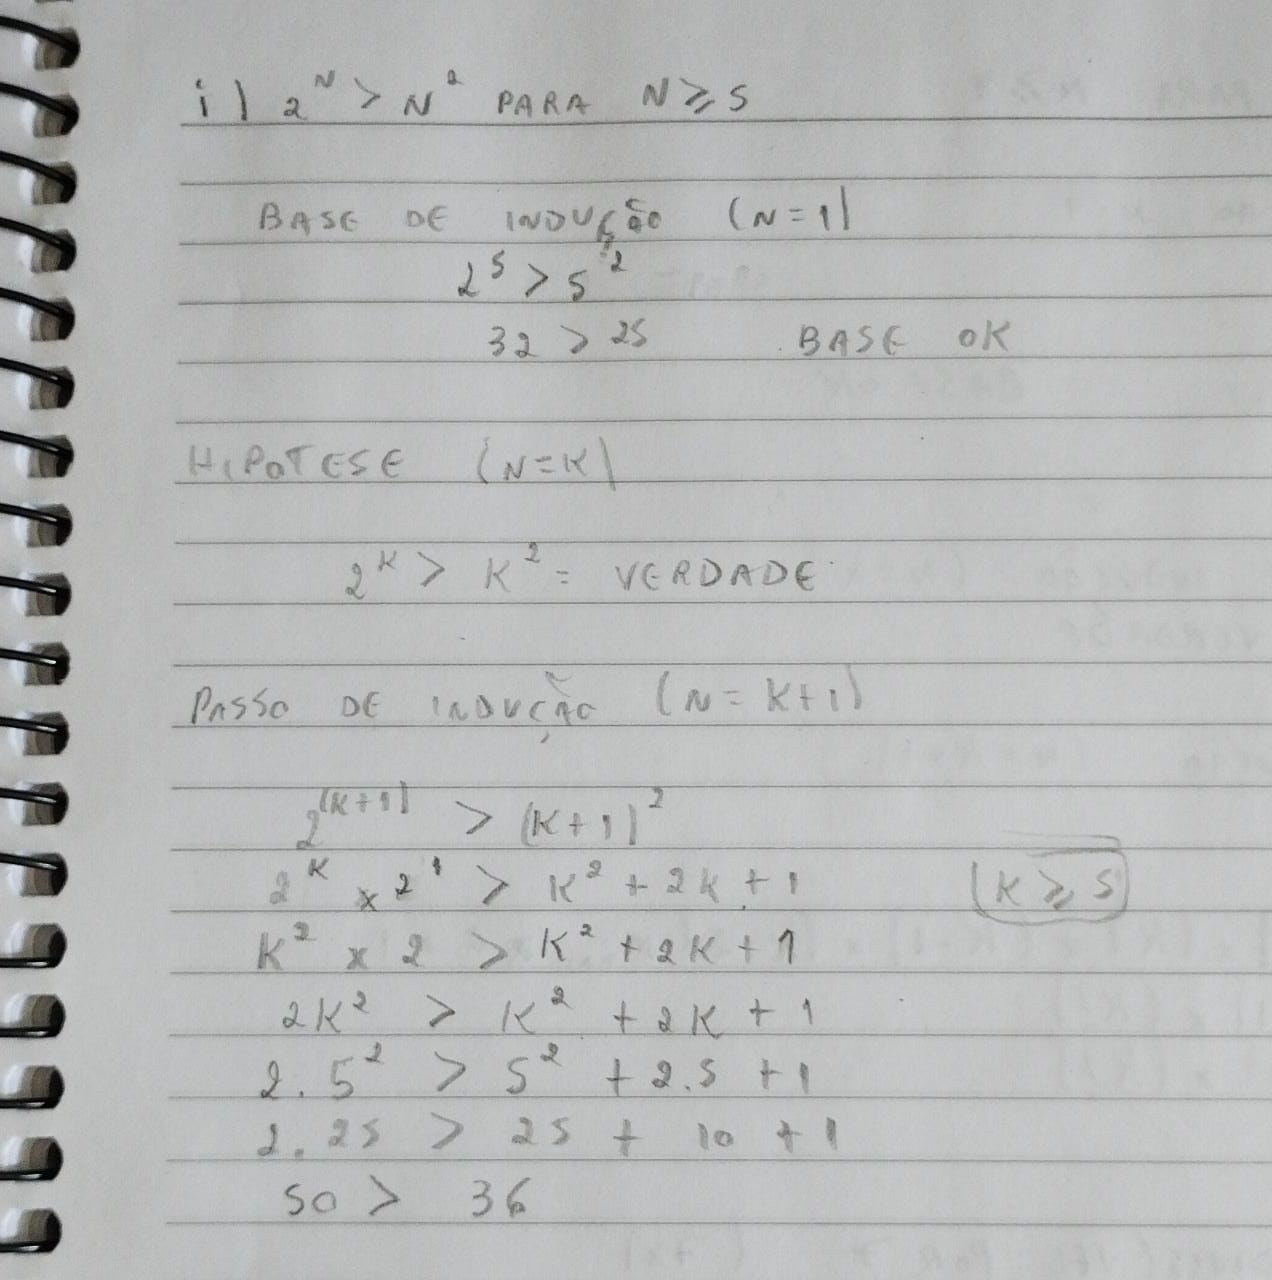 i) 2^N > N^2 PARA N ⩾ 5
BASE DE INDUÇÃO (N=1)
2^5 > 5^2
32 > 25 BASE OK
HIPOTESE (N=K)
2^K > K^2 = VERDADE
PASSO DE INDUÇÃO (N = K+1)
2^(K+1) > (K+1)^2
2^K x 2^1 > K^2 + 2K + 1 (K ⩾ 5)
K^2 x 2 > K^2 + 2K + 1
2K^2 > K^2 + 2K + 1
2.5^2 > 5^2 + 2.5 + 1
2.25 > 25 + 10 + 1
50 > 36